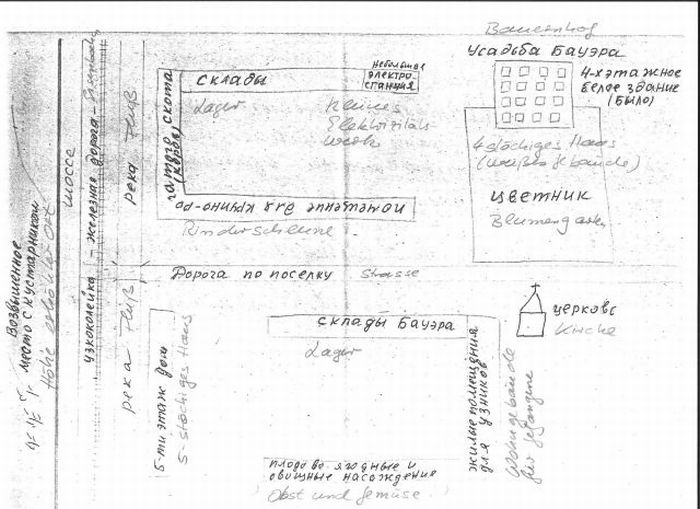 Bauernhof
Усадьба Бауэра
4-хэтажное
белое здание
(было)
4 stöckiges Haus
цветник
Blumengarten
небольшая
электро-
станция
склады
Lager
Kleines
Elektrizitäts
werk
загтов скота
(коров)
помещение для крупно-ро-
Rinderscheune
Возвышенное
место с кустарником
Höhe
шоссе
узкоколейка - железная дорога - Eisenbahn
река Fluß
Дорога по поселку Strasse
река Fluß
5-ти этаж дом
5-stöckiges Haus
склады Бауэра
Lager
жилые помещения
для узников
Wohngebäude
für Gefangene
церковь
Kirche
плодово-ягодные и
овощные насаждение
(Obst und Gemüse)